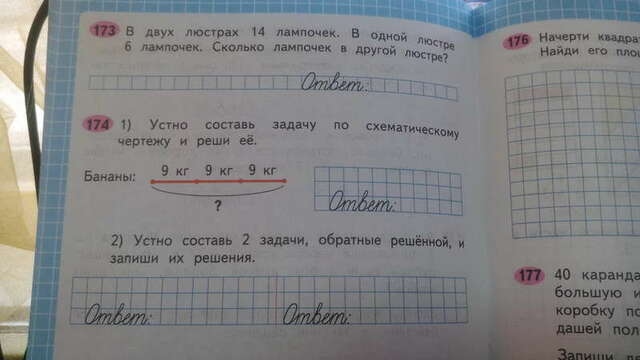 173 В двух люстрах 14 лампочек. В одной люстре
6 лампочек. Сколько лампочек в другой люстре?
Ответ:
174 1) Устно составь задачу по схематическому
чертежу и реши её.
Бананы: 9 кг 9 кг 9 кг
?
Ответ:
2) Устно составь 2 задачи, обратные решённой, и
запиши их решения.
Ответ: Ответ:
176 Начерти квадрат
Найди его пло
177 40 каранда
большую и
коробку по
дашей пол
Запиши